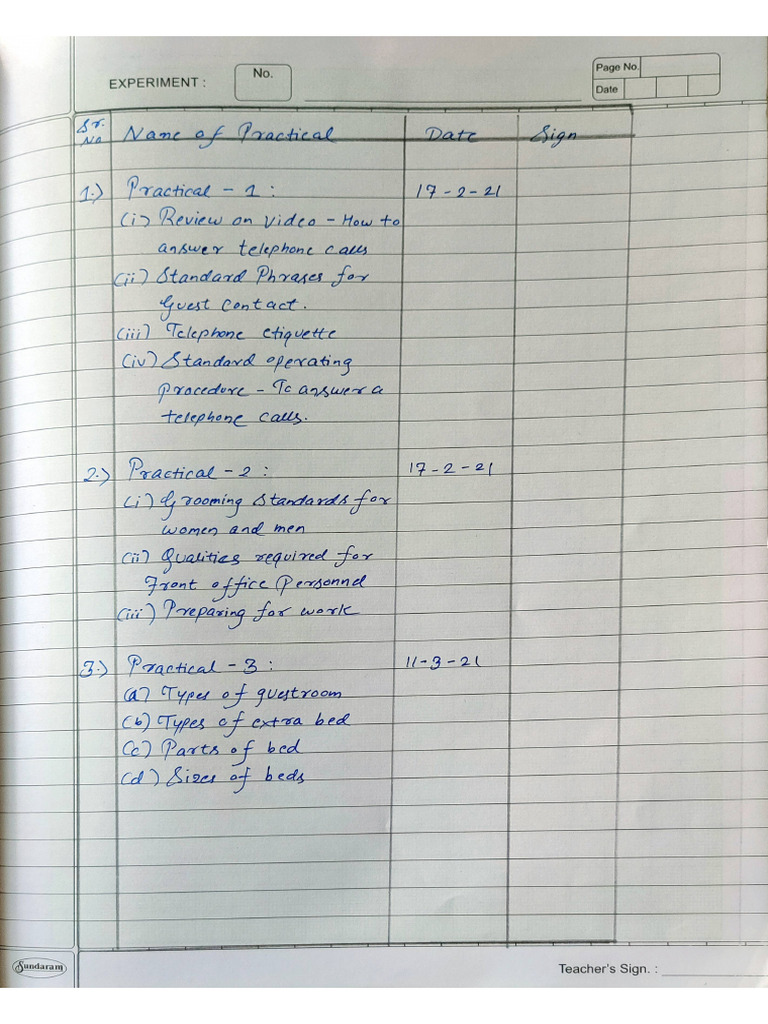 EXPERIMENT :
No.
Page No.
Date
Sr. No
Name of Practical
Date
Sign
1.)
Practical - 1 :
17-2-21
(i) Review on video - How to
answer telephone calls
(ii) Standard Phrases for
Guest contact.
(iii) Telephone etiquette
(iv) Standard operating
Procedure - To answer a
telephone calls.
2.)
Practical - 2 :
17-2-21
(i) Grooming standards for
women and men
(ii) Qualities required for
Front office Personnel
(iii) Preparing for work
3.)
Practical - 3 :
11-3-21
(a) Types of guestroom
(b) Types of extra bed
(c) Parts of bed
(d) Sizes of beds
Sundaram
Teacher's Sign. :